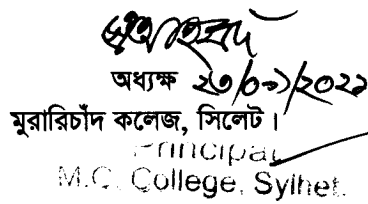 অধ্যক্ষ
মুরারিচাঁদ কলেজ, সিলেট।
Principal
M.C. College, Sylhet.